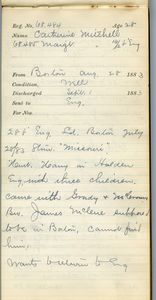 Reg. No. 68.484 Age 28
Name Catherine Mitchell
68485 Margt
From Boston Aug. 28 1883
Condition, Well
Discharged Sept. 1 188
Sent to Eng.
For Nos.
288 Eng. Ld. Boston July
20/83 Stmr. "Missouri"
Husb. Henry in
Eng with three children
came with
Bro. James McLene supposed
to be in Boston, cannot find
him.
Wants to return to Eng